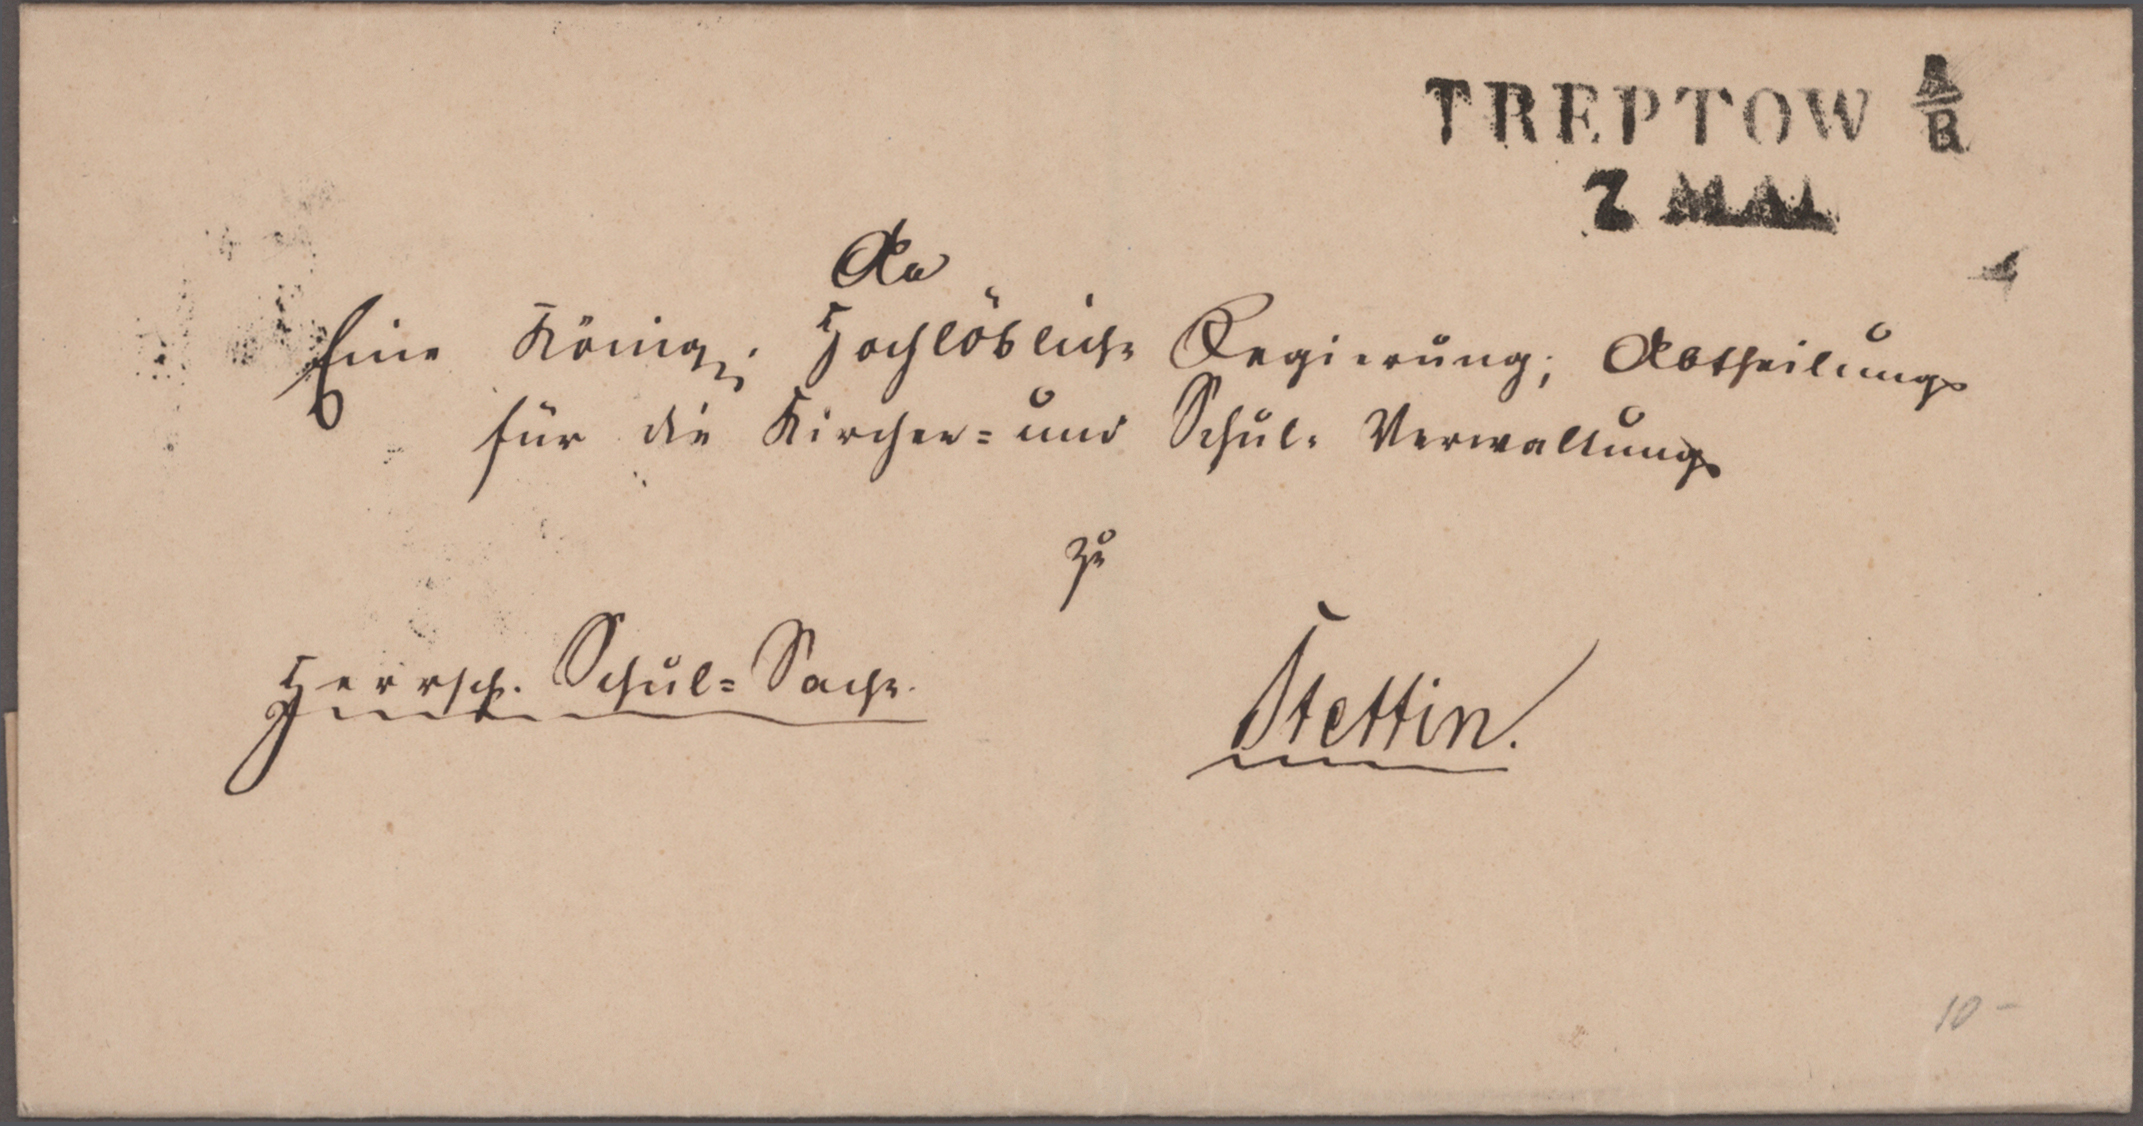 TREPTOW A/R
7 MAI
An
Eine König. Hochlöbliche Regierung; Abtheilung
für die Kirchen= und Schul= Verwaltung
zu
Herrsch. Schul= Sache.
Stettin.
10 –